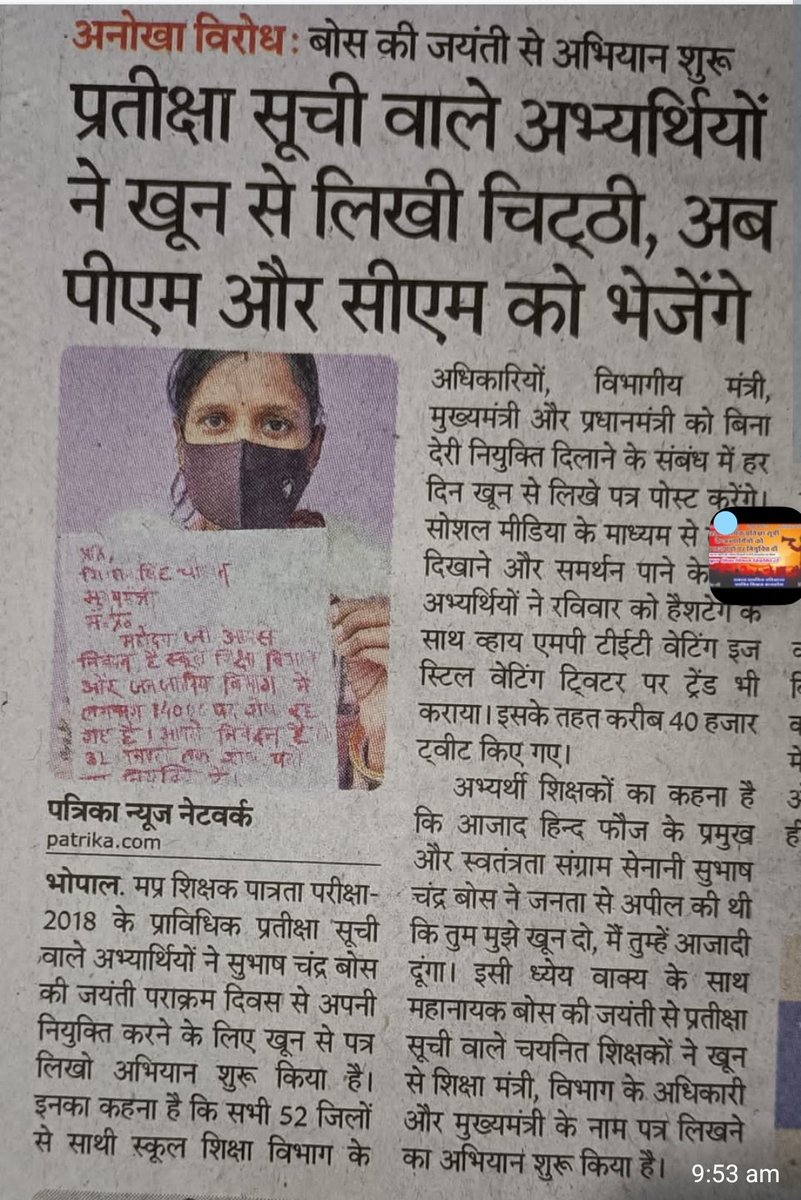 अनोखा विरोध: बोस की जयंती से अभियान शुरू
प्रतीक्षा सूची वाले अभ्यर्थियों
ने खून से लिखी चिट्ठी, अब
पीएम और सीएम को भेजेंगे
मुख्यमंत्री
म.प्र.
महोदय जी आपसे
निवेदन है स्कूल शिक्षा विभाग
और जनजातीय विभाग में
पत्रिका न्यूज नेटवर्क
patrika.com
भोपाल. मप्र शिक्षक पात्रता परीक्षा-
2018 के प्राविधिक प्रतीक्षा सूची
वाले अभ्यार्थियों ने सुभाष चंद्र बोस
की जयंती पराक्रम दिवस से अपनी
नियुक्ति करने के लिए खून से पत्र
लिखो अभियान शुरू किया है।
इनका कहना है कि सभी 52 जिलों
से साथी स्कूल शिक्षा विभाग के
अधिकारियों, विभागीय मंत्री,
मुख्यमंत्री और प्रधानमंत्री को बिना
देरी नियुक्ति दिलाने के संबंध में हर
दिन खून से लिखे पत्र पोस्ट करेंगे।
सोशल मीडिया के माध्यम से
दिखाने और समर्थन पाने के
अभ्यर्थियों ने रविवार को हैशटेग के
साथ व्हाय एमपी टीईटी वेटिंग इज
स्टिल वेटिंग ट्विटर पर ट्रेंड भी
कराया। इसके तहत करीब 40 हजार
ट्वीट किए गए।
अभ्यर्थी शिक्षकों का कहना है
कि आजाद हिन्द फौज के प्रमुख
और स्वतंत्रता संग्राम सेनानी सुभाष
चंद्र बोस ने जनता से अपील की थी
कि तुम मुझे खून दो, मैं तुम्हें आजादी
दूंगा। इसी ध्येय वाक्य के साथ
महानायक बोस की जयंती से प्रतीक्षा
सूची वाले चयनित शिक्षकों ने खून
से शिक्षा मंत्री, विभाग के अधिकारी
और मुख्यमंत्री के नाम पत्र लिखने
का अभियान शुरू किया है।
9:53 am